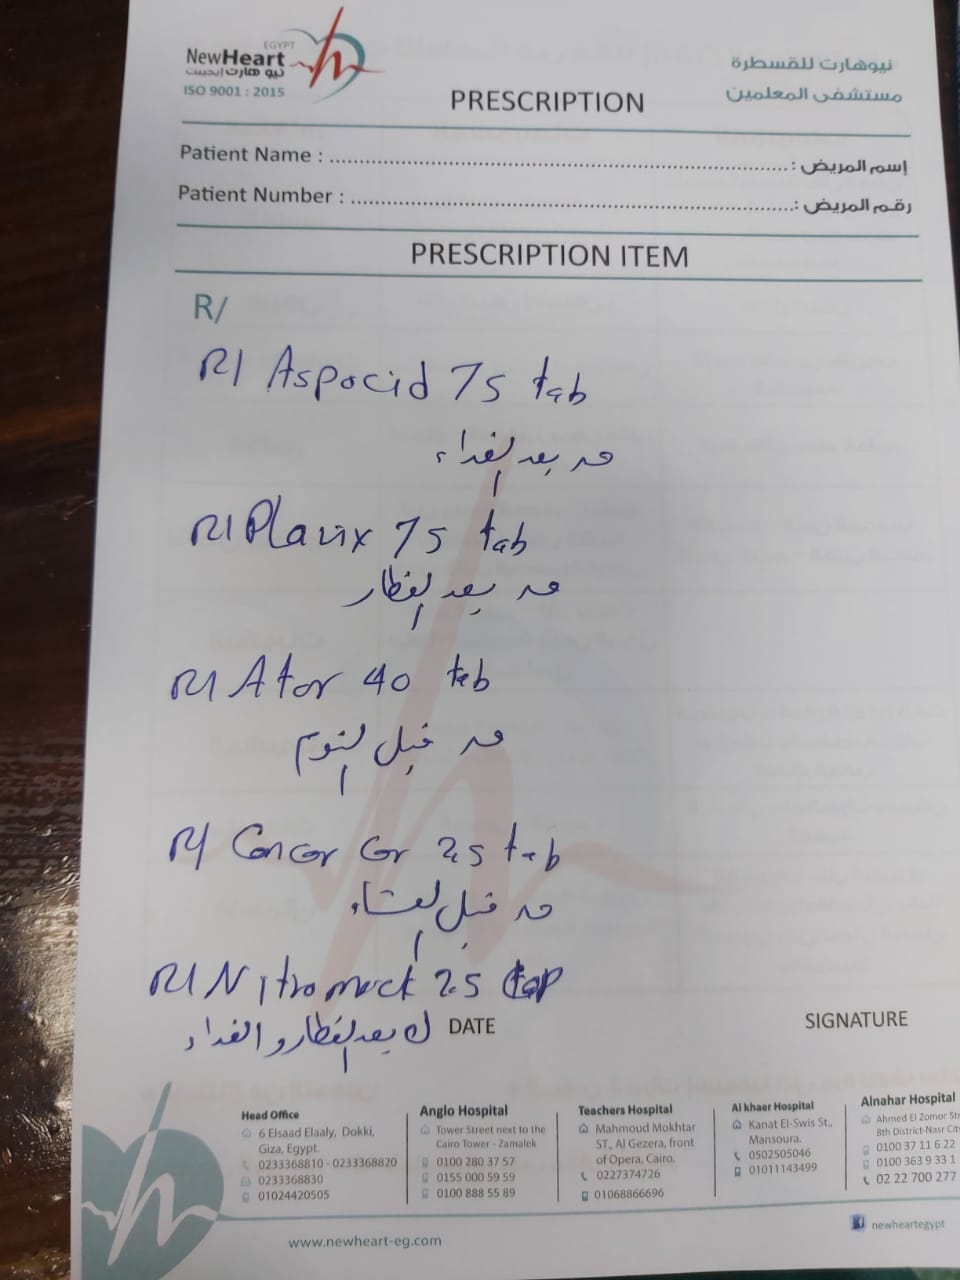 EGYPT
NewHeart
نيو هارت إيجيبت
ISO 9001 : 2015
PRESCRIPTION
نيوهارت للقسطرة
مستشفى المعلمين
Patient Name : إسم المريض :
Patient Number : رقم المريض :
PRESCRIPTION ITEM
R/
R/ Aspocid 75 tab
قرص بعد الغداء
R/ Plavix 75 tab
قرص بعد الفطار
R/ Ator 40 tab
قرص قبل النوم
R/ Concor Cor 2.5 tab
قرص قبل العشاء
R/ Nitromack 2.5 cap
ك بعد الفطار و الغداء
DATE
SIGNATURE
Head Office
6 Elsaad Elaaly, Dokki,
Giza, Egypt.
0233368810 - 0233368820
0233368830
01024420505
Anglo Hospital
Tower Street next to the
Cairo Tower - Zamalek
0100 280 37 57
0155 000 59 59
0100 888 55 89
Teachers Hospital
Mahmoud Mokhtar
ST., Al Gezera, front
of Opera, Cairo.
0227374726
01068866696
Al khaer Hospital
Kanat El-Swis St.,
Mansoura.
0502505046
01011143499
Alnahar Hospital
Ahmed El Zomor
8th District-Nasr
0100 37 11 6 22
0100 363 9 33 1
02 22 700 277
www.newheart-eg.com
newheartegypt